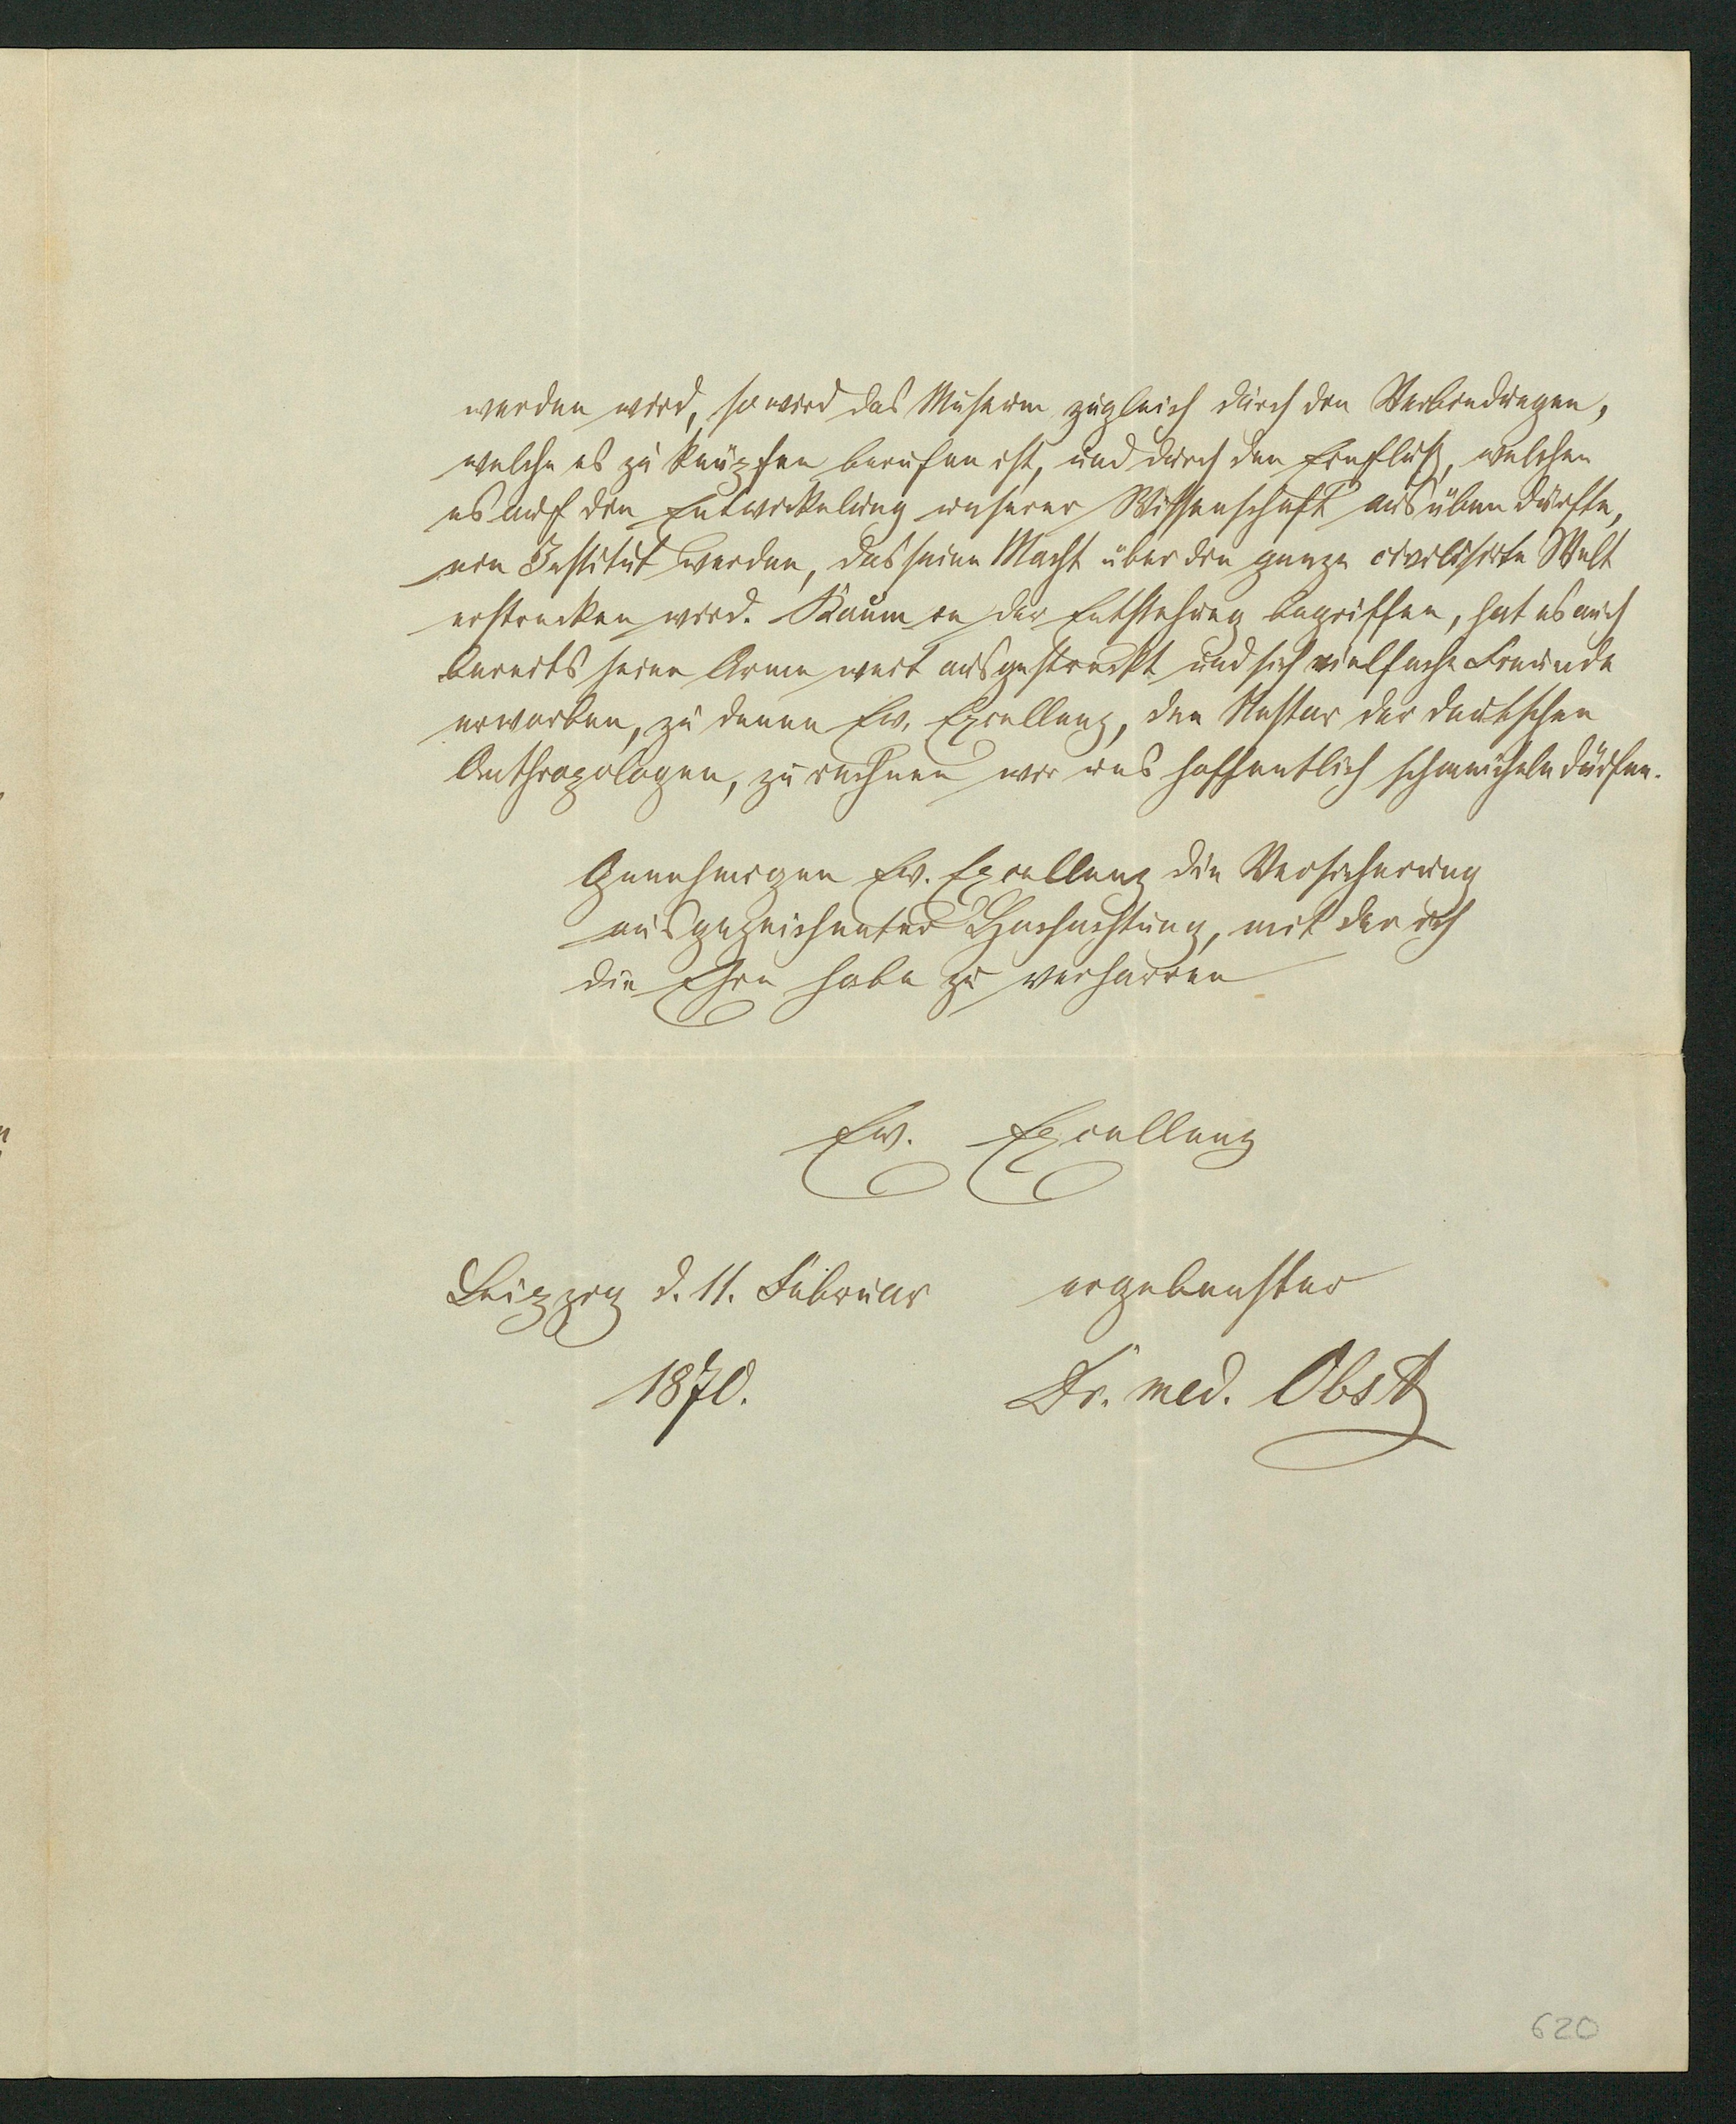 werden wird, so wird das Museum zugleich durch die Verbindungen,
welche es zu knüpfen berufen ist, und durch den Einfluß, welchen
es auf die Entwickelung unserer Wissenschaft ausüben dürfte,
ein Institut werden, das seine Macht über die ganze civilisirte Welt
erstrecken wird. Kaum in der Entstehung begriffen, hat es auch
bereits seine Arme weit ausgestreckt und sich vielfache Freunde
erworben, zu denen Ew. Excellenz, den Nestor der deutschen
Anthropologen, zu rechnen wir uns hoffentlich schmeicheln dürfen.
Genehmigen Ew. Excellenz die Versicherung
ausgezeichneter Hochachtung, mit der ich
die Ehre habe zu verharren
Ew. Excellenz
Leipzig d. 11. Februar ergebenster
1870. Dr. med. Obst
620